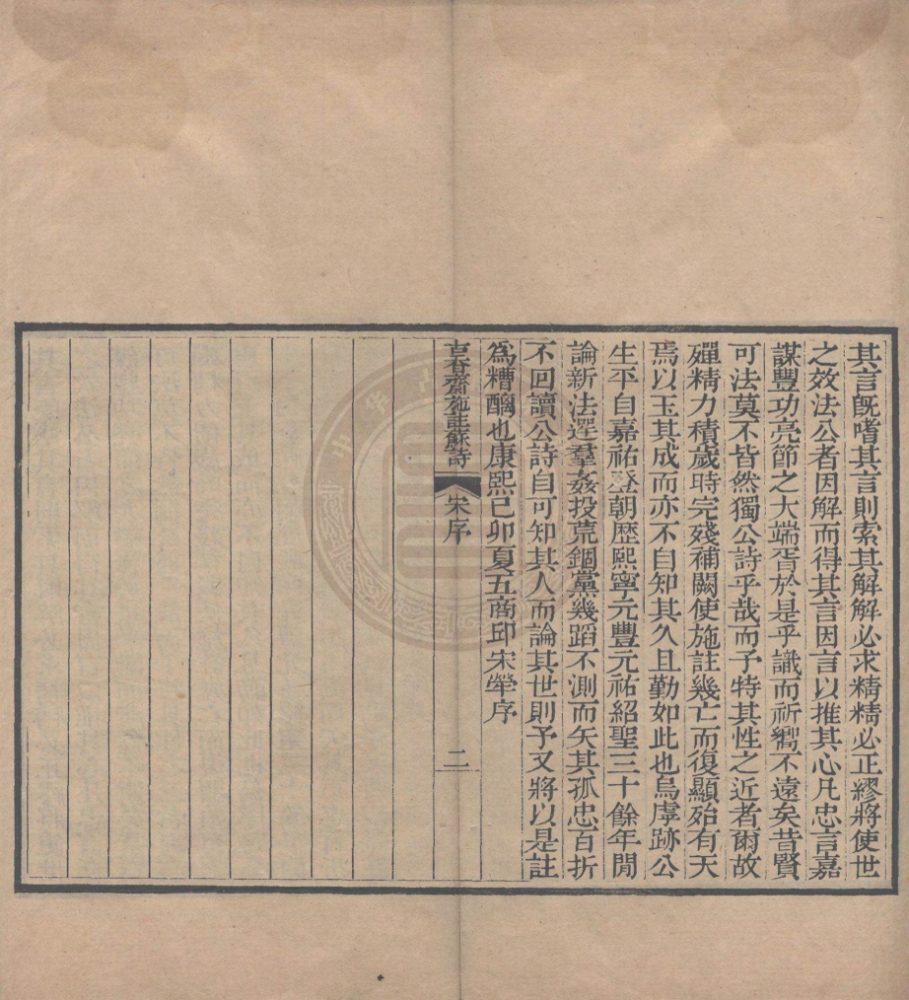 其言旣嗜其言則索其解解必求精精必正繆將使世
之效法公者因解而得其言因言以推其心凡忠言嘉
謀豐功亮節之大端胥於是乎識而祈嚮不遠矣昔賢
可法莫不皆然獨公詩乎哉而予特其性之近者爾故
殫精力積歲時完殘補闕使施註幾亡而復顯殆有天
焉以玉其成而亦不自知其久且勤如此也烏虖跡公
生平自嘉祐登朝歷熙寧元豐元祐紹聖三十餘年閒
論新法遻羣姦投荒錮黨幾蹈不測而矢其孤忠百折
不回讀公詩自可知其人而論其世則予又將以是註
爲糟醨也康熙己卯夏五商邱宋犖序
古香齋施註蘇詩 宋序 二